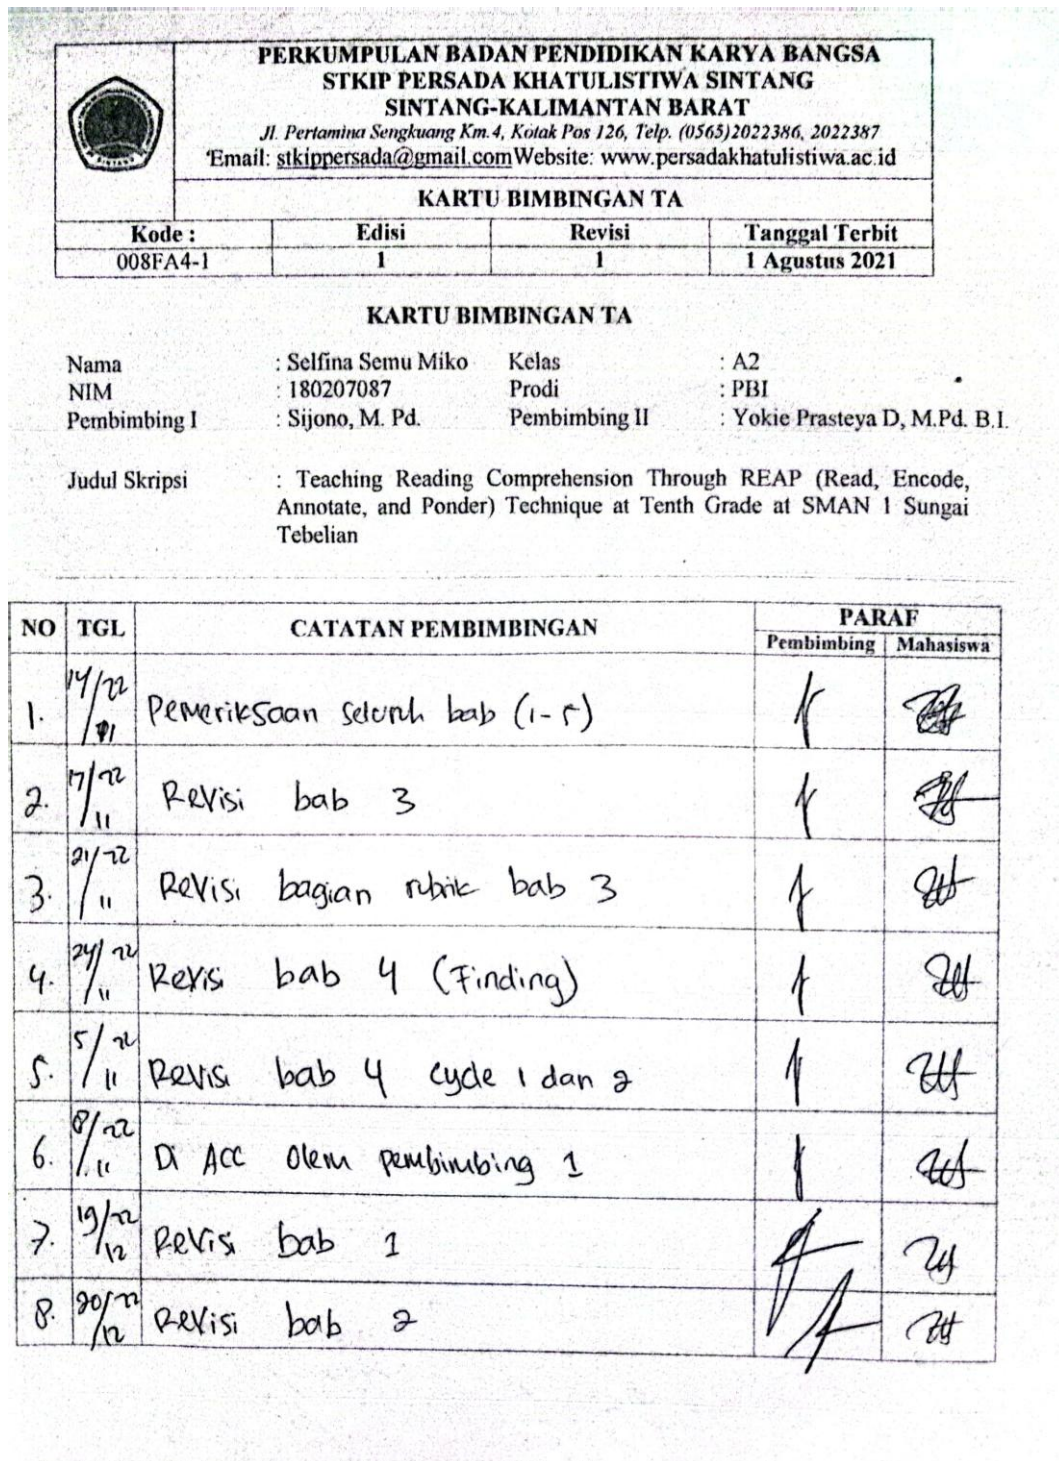 PERKUMPULAN BADAN PENDIDIKAN KARYA BANGSA
STKIP PERSADA KHATULISTIWA SINTANG
SINTANG-KALIMANTAN BARAT
Jl. Pertamina Sengkuang Km.4, Kotak Pos 126, Telp. (0565)2022386, 2022387
Email: stkippersada@gmail.comWebsite: www.persadakhatulistiwa.ac.id
KARTU BIMBINGAN TA
Kode : Edisi Revisi Tanggal Terbit
008FA4-1 1 1 1 Agustus 2021
KARTU BIMBINGAN TA
Nama : Selfina Semu Miko Kelas : A2
NIM : 180207087 Prodi : PBI
Pembimbing I : Sijono, M. Pd. Pembimbing II : Yokie Prasteya D, M.Pd. B.I.
Judul Skripsi : Teaching Reading Comprehension Through REAP (Read, Encode,
Annotate, and Ponder) Technique at Tenth Grade at SMAN 1 Sungai
Tebelian
NO TGL CATATAN PEMBIMBINGAN PARAF
Pembimbing Mahasiswa
1. 14/22 /11 Pemeriksaan seluruh bab (1-5)
2. 17/22 /11 Revisi bab 3
3. 21/22 /11 Revisi bagian rubrik bab 3
4. 24/22 /11 Revisi bab 4 (Finding)
5. 5/22 /11 Revisi bab 4 cycle 1 dan 2
6. 8/22 /11 Di ACC Olem pembimbing 1
7. 19/22 /12 Revisi bab 1
8. 20/22 /12 Revisi bab 2